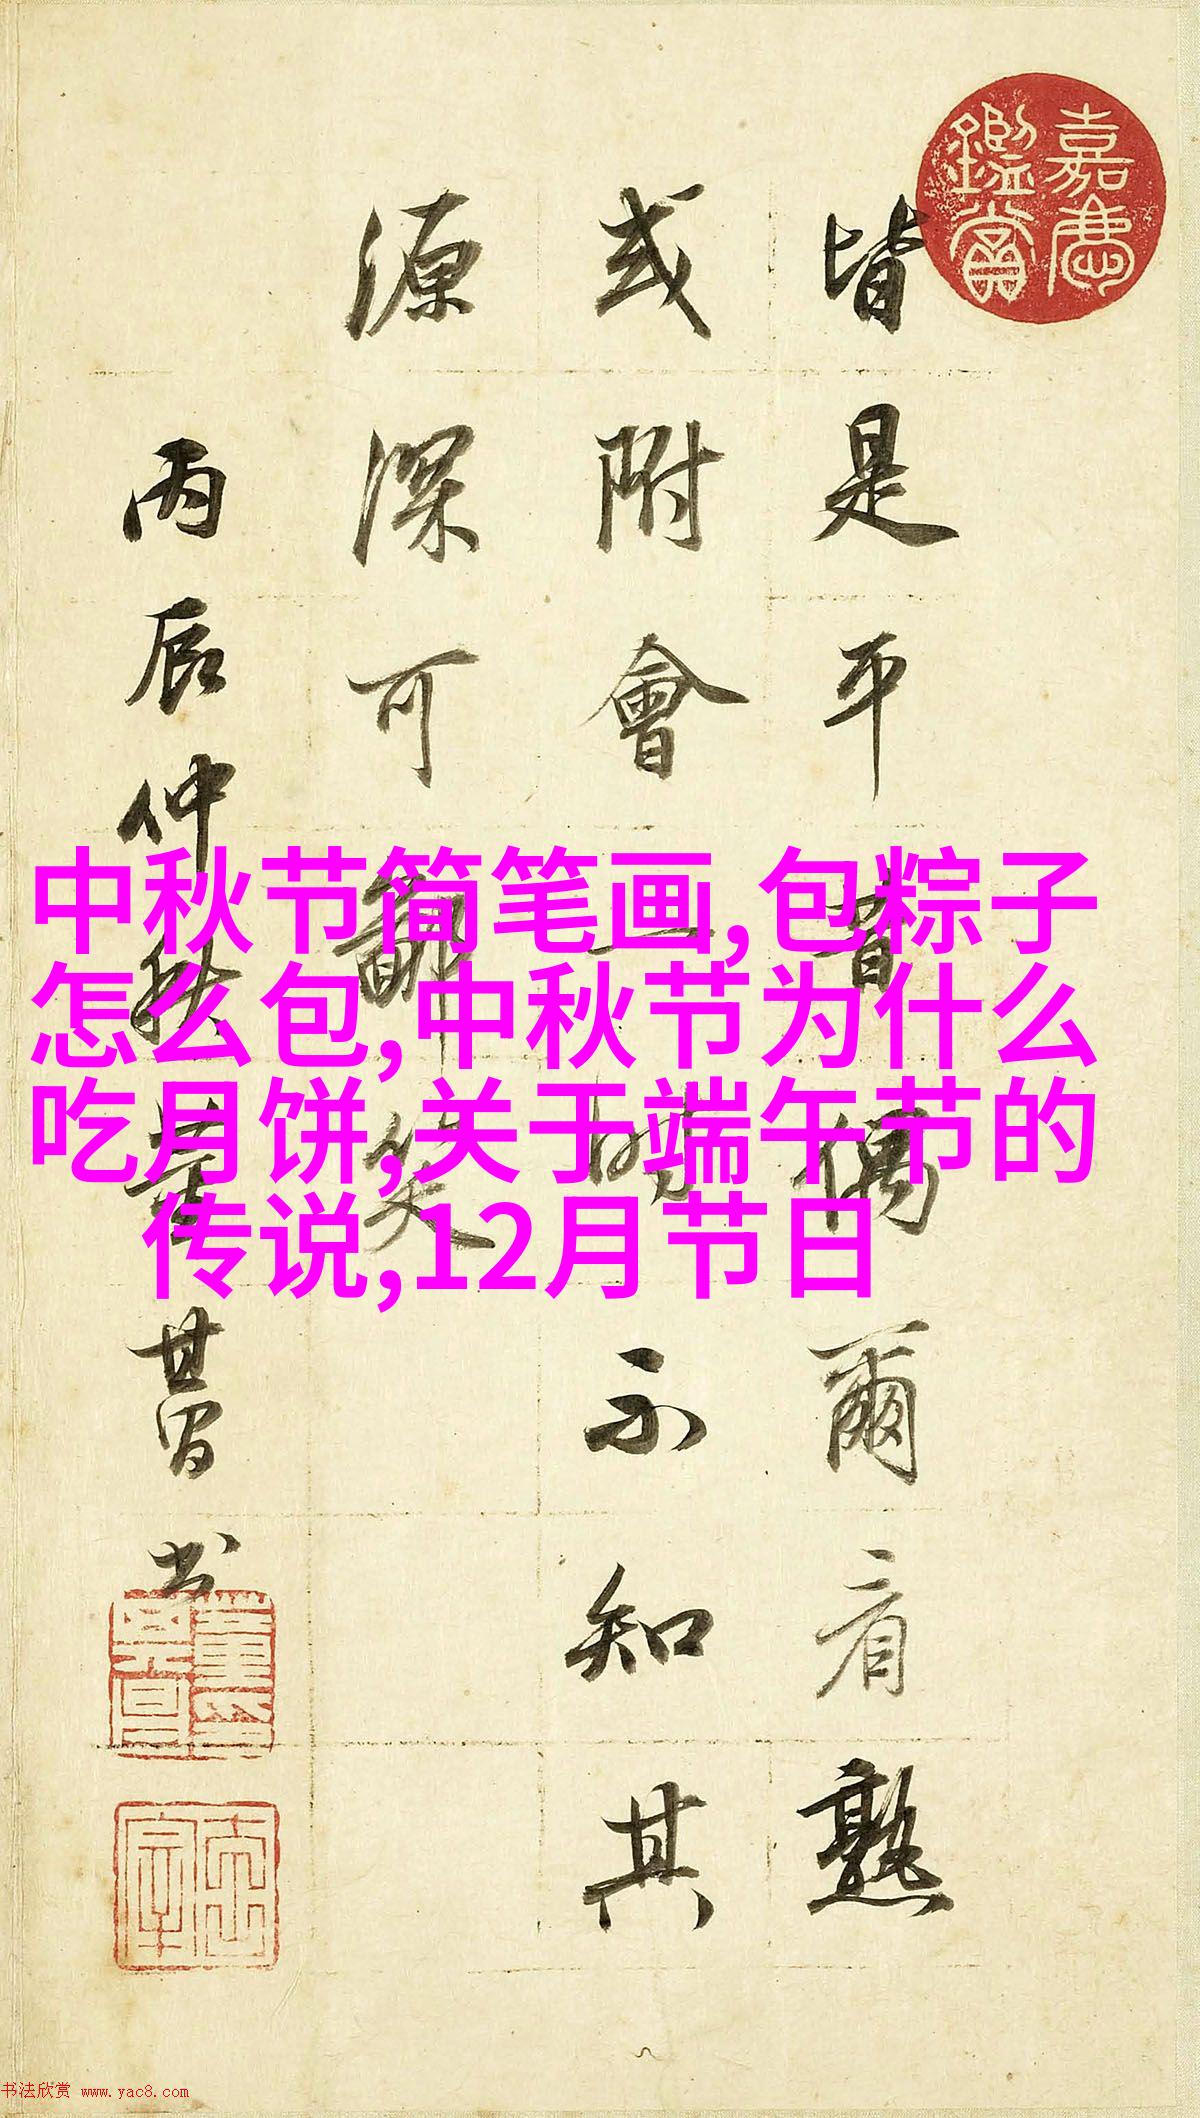 嘉慶
鑑賞
皆是平昔偶爾看熟
或附會一時不知其
源深可鄙笑
丙辰仲秋董其昌书
中秋节简笔画,包粽子
怎么包,中秋节为什么
吃月饼,关于端午节的
传说,12月节日
书法欣赏 www.yac8.com